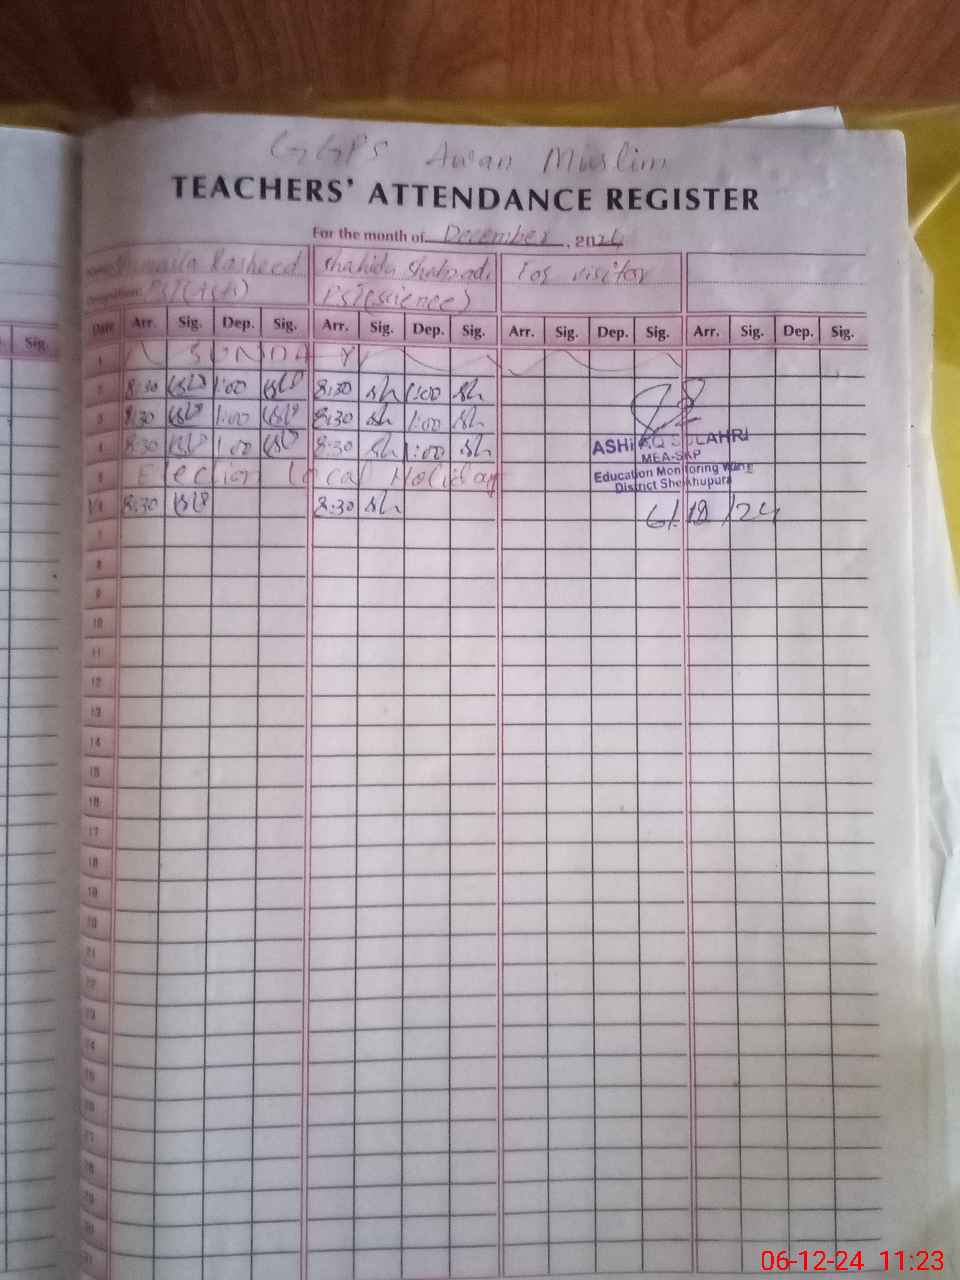 GGPS Awan Muslim
TEACHERS' ATTENDANCE REGISTER
For the month of December, 2024
Name Rasheed Shahida For visitor
Designation PST (Science)
Date Arr. Sig. Dep. Sig. Arr. Sig. Dep. Sig. Arr. Sig. Dep. Sig. Arr. Sig. Dep. Sig.
Sig.
1 S U N D A Y
2 8:30 1:00 8:30 sh 1:00 sh
3 8:30 1:00 8:30 sh 1:00 sh
4 8:30 1:00 8:30 sh 1:00 sh
5 Election Local Holiday
6 8:30 8:30 sh
ASHFAQ SULAHRI
MEA-SAP
Education Monitoring Wing
District Sheikhupura
6/12/24
7
8
9
10
11
12
13
14
15
16
17
18
19
20
21
22
23
24
25
26
27
28
29
30
31
06-12-24 11:23